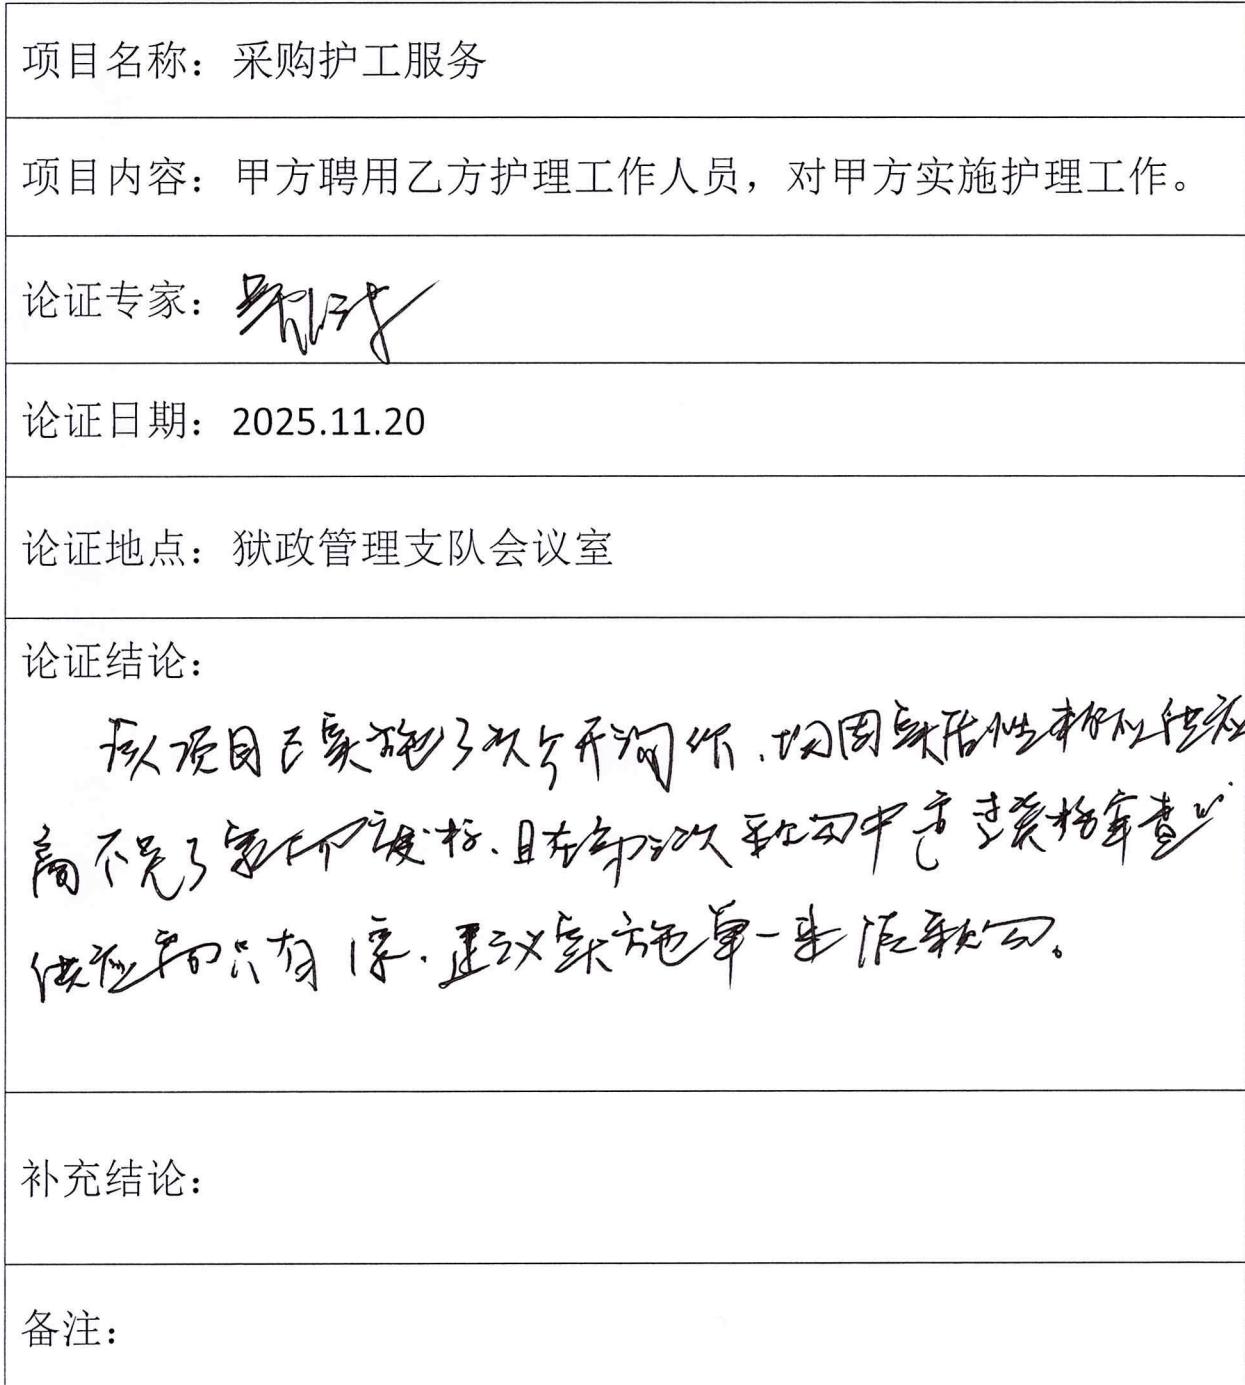 项目名称：采购护工服务
项目内容：甲方聘用乙方护理工作人员，对甲方实施护理工作。
论证专家：
论证日期：2025.11.20
论证地点：狱政管理支队会议室
论证结论：
该项目已实施了次公开询价，均因实质性供应
商不足3家废标，且在采购中资格审查
供应商只有1家，建议实施单一来源采购。
补充结论：
备注：